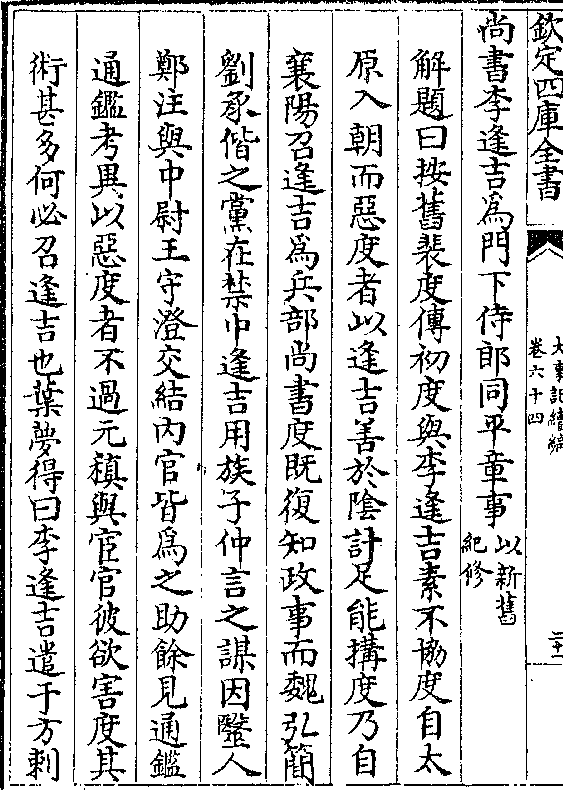 欽定四庫全書
大事記續編
卷六十四
二十一
尚書李逢吉爲門下侍郎同平章事以新舊紀修
解題曰按舊裴度傳初度與李逢吉素不協度自太
原入朝而惡度者以逢吉善於陰計足能搆度乃自
襄陽召逢吉爲兵部尚書度既復知政事而魏弘簡
劉承偕之黨在禁中逢吉用族子仲言之謀因醫人
鄭注與中尉王守澄交結内官皆爲之助餘見通鑑
通鑑考異以惡度者不過元稹與宦官彼欲害度其
術甚多何必召逢吉也葉夢得曰李逢吉遣于方刺